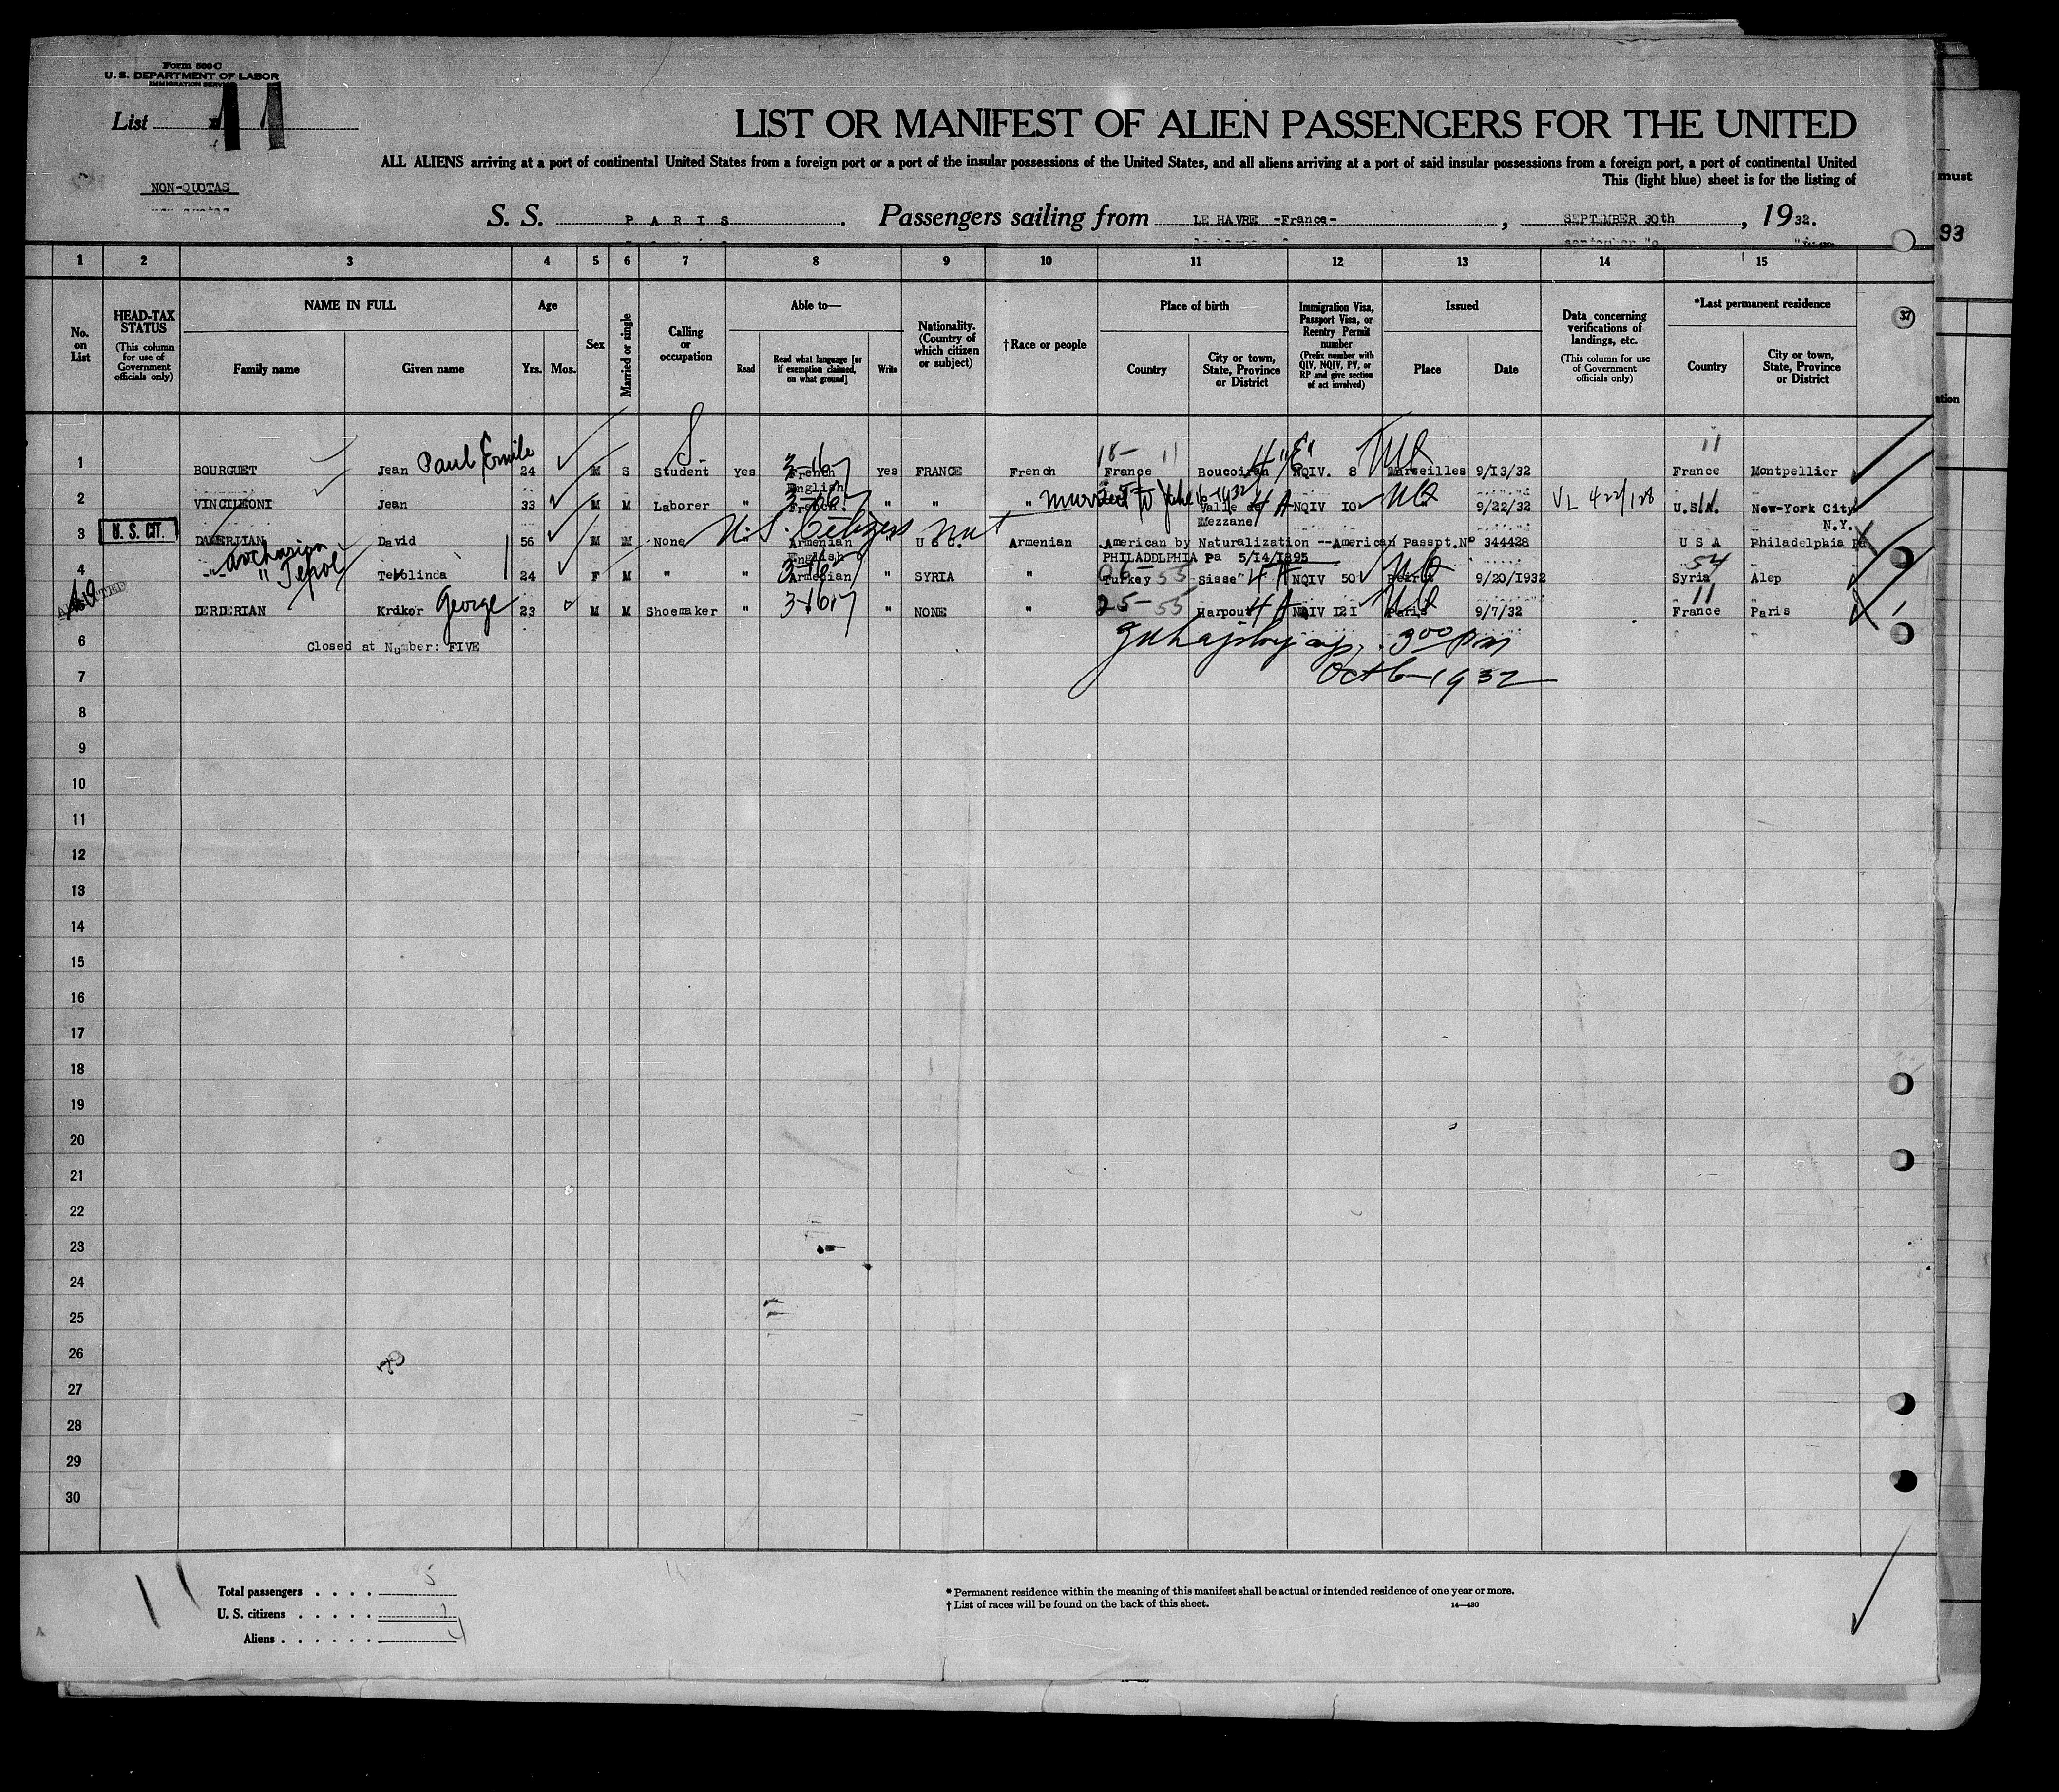 Form 500 C
U. S. DEPARTMENT OF LABOR
IMMIGRATION SERVICE
List 11
LIST OR MANIFEST OF ALIEN PASSENGERS FOR THE UNITED
ALL ALIENS arriving at a port of continental United States from a foreign port or a port of the insular possessions of the United States, and all aliens arriving at a port of said insular possessions from a foreign port, a port of continental United
This (light blue) sheet is for the listing of
must
NON-QUOTAS
S. S. PARIS. Passengers sailing from LE HAVRE -France-, SEPTEMBER 30th, 1932.
93
1 2 3 4 5 6 7 8 9 10 11 12 13 14 15
No. on List
HEAD-TAX STATUS (This column for use of Government officials only)
NAME IN FULL
Family name Given name
Age
Yrs. Mos.
Sex
Married or single
Calling or occupation
Able to—
Read
Read what language [or if exemption claimed, on what ground]
Write
Nationality. (Country of which citizen or subject)
†Race or people
Place of birth
Country
City or town, State, Province or District
Immigration Visa, Passport Visa, or Reentry Permit number (Prefix number with QIV, NQIV, PV, or RP and give section of act involved)
Issued
Place Date
Data concerning verifications of landings, etc. (This column for use of Government officials only)
*Last permanent residence
Country
City or town, State, Province or District
37
1 BOURGUET Jean Paul Emile 24 M S Student Yes French 3-167 Yes FRANCE French France Boucoiran 4 "E" NQIV. 8 Marseilles 9/13/32 France 11 Montpellier
English
2 VINCILEONI Jean 33 M M Laborer " French " " " Valle de Mezzane 4 A NQIV 10 9/22/32 VL 422/128 U.S.A. New-York City N.Y.
3 U. S. CIT. David 56 M M None U.S. Citizens Armenian " U S C. Armenian American by Naturalization --American Passpt.N° 344428 U S A Philadelphia Pa
English PHILADDLPHIA Pa 5/14/1895
4 -"- 24 F M " " Armenian " SYRIA " Turkey 55 Sisse" 4 A NQIV 50 Beirut 9/20/1932 Syria 54 Alep
5 DERDERIAN Krikor George 23 M M Shoemaker " 3-167 " NONE " 25- 55 Harpout 4 A NQIV 121 Paris 9/7/32 France 11 Paris
6 Closed at Number: FIVE 3 00 pm
7 Oct 6-1932
8
9
10
11
12
13
14
15
16
17
18
19
20
21
22
23
24
25
26
27
28
29
30
Total passengers . . . . 5
U. S. citizens . . . . .
Aliens . . . . . . 4
* Permanent residence within the meaning of this manifest shall be actual or intended residence of one year or more.
† List of races will be found on the back of this sheet.
14—430